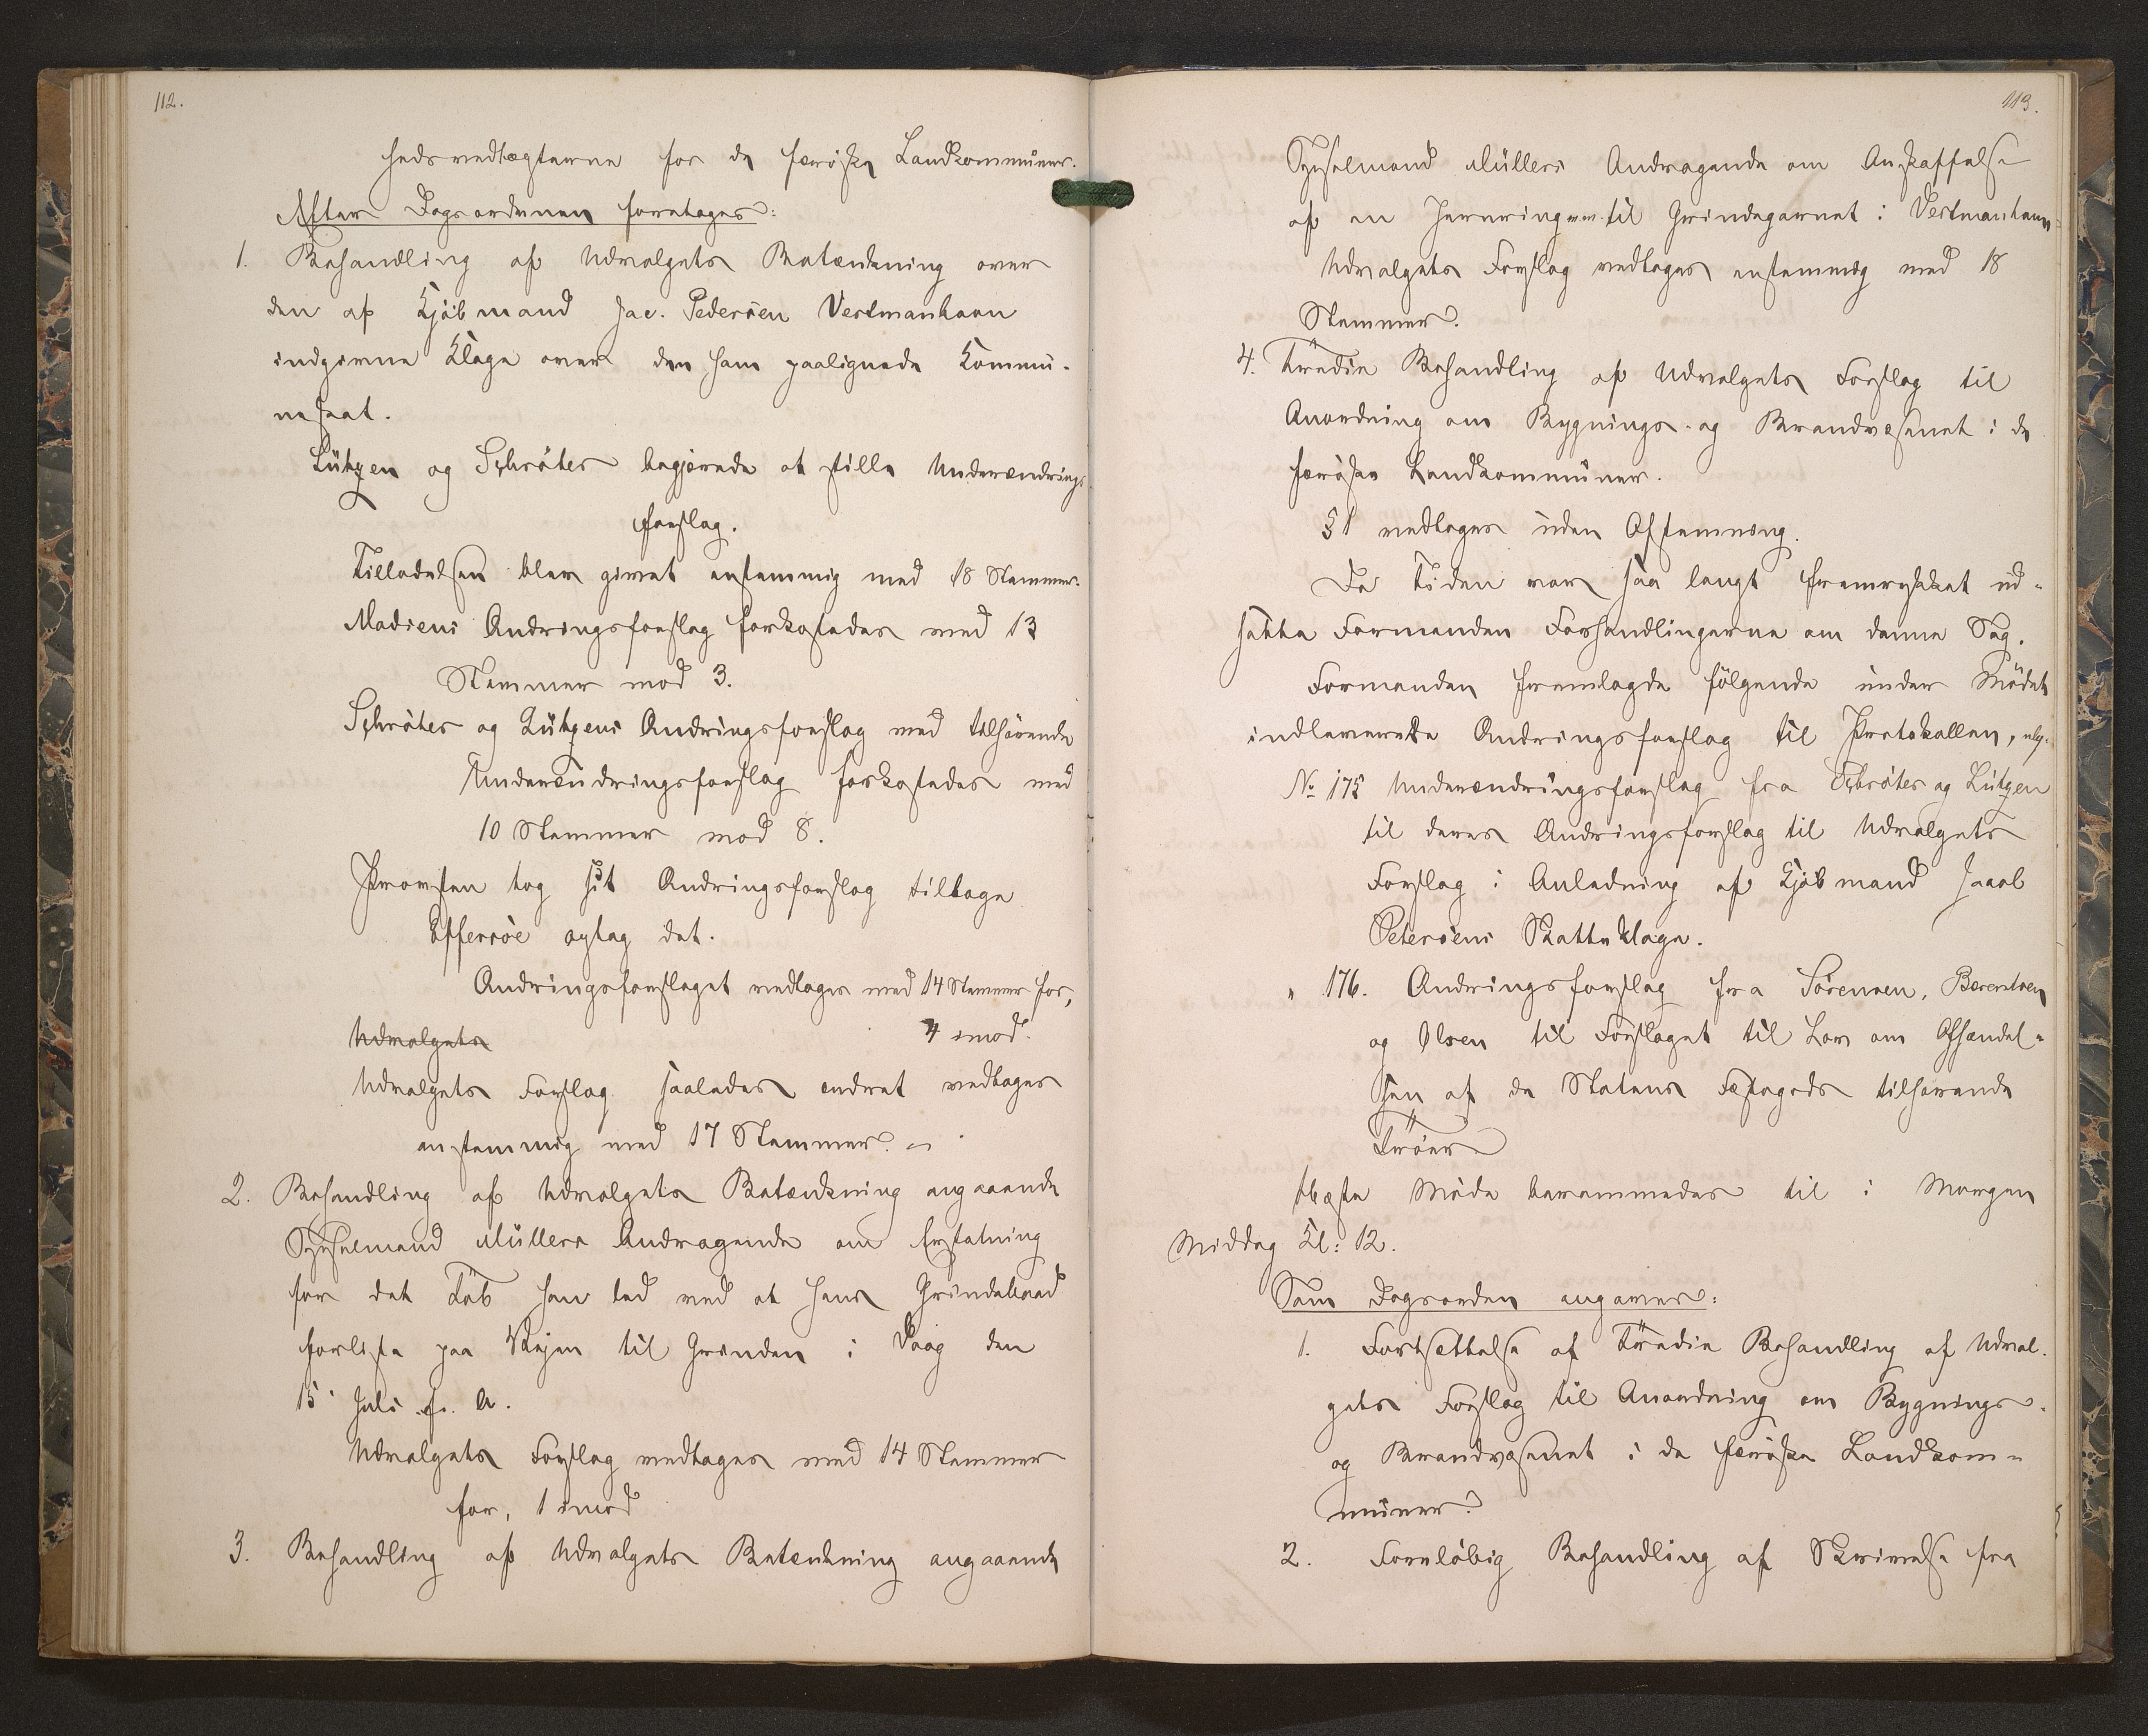 112.
hedsvedtægterne for de færøske Landkommuner.
Efter Dagsordenen foretages:
1. Behandling af Udvalgets Betænkning over
den af Kjøbmand Jac. Pedersen Vestmanhavn
indgivne Klage over den ham paalignede Kommu-
neskat.
Lützen og Schrøter begjerede at stille Underændrings
forslag.
Tilladelsen blev givet enstemmig med 18 Stemmer.
Madsens Ændringsforslag forkastedes med 13
Stemmer mod 3.
Schrøter og Lützens Ændringsforslag med tilhørende
Underændringsforslag forkastedes med
10 Stemmer mod 8.
Provsten tog sit Ændringsforslag tilbage
Effersøe optog det.
Ændringsforslaget vedtages med 14 Stemmer for,
Udvalgets 4 imod.
Udvalgets Forslag saaledes ændret vedtages
enstemmig med 17 Stemmer. –
2. Behandling af Udvalgets Betænkning angaaende
Sysselmand Müllers Andragende om Erstatning
for det Tab han led ved at hans Grindebaad
forliste paa Vejen til Grinden i Vaag den
15' Juli f. A.
Udvalgets Forslag vedtages med 14 Stemmer
for, 1 imod
3. Behandling af Udvalgets Betænkning angaaende
113.
Sysselmand Müllers Andragende om Anskaffelse
af en Jernring m. m. til Grindegarnet i Vestmanhavn
Udvalgets Forslag vedtages enstemmig med 18
Stemmer.
4. Tredie Behandling af Udvalgets Forslag til
Anordning om Bygnings- og Brandvæsenet i de
færøske Landkommuner.
§ 1 vedtages uden Afstemning.
Da Tiden var saa langt fremrykket ud-
satte Formanden Forhandlingerne om denne Sag.
Formanden fremlagde følgende under Mødet
indleverede Ændringsforslag til Protokollen, nlg.
No 175 Underændringsforslag fra Schrøter og Lützen
til deres Ændringsforslag til Udvalgets
Forslag i Anledning af Kjøbmand Jacob
Petersens Skatteklage.
" 176. Ændringsforslag fra Sørensen, Bærentsen
og Olsen til Forslaget til Lov om Afhændel-
sen af de Statens Fæstegods tilhørende
Trøer
Næste Møde berammedes til i Morgen
Middag Kl: 12.
Som Dagsorden angaves:
1. Fortsættelse af Tredie Behandling af Udval-
gets Forslag til Anordning om Bygnings-
og Brandvæsenet i de færøske Landkom-
muner.
2. Foreløbig Behandling af Skrivelse fra